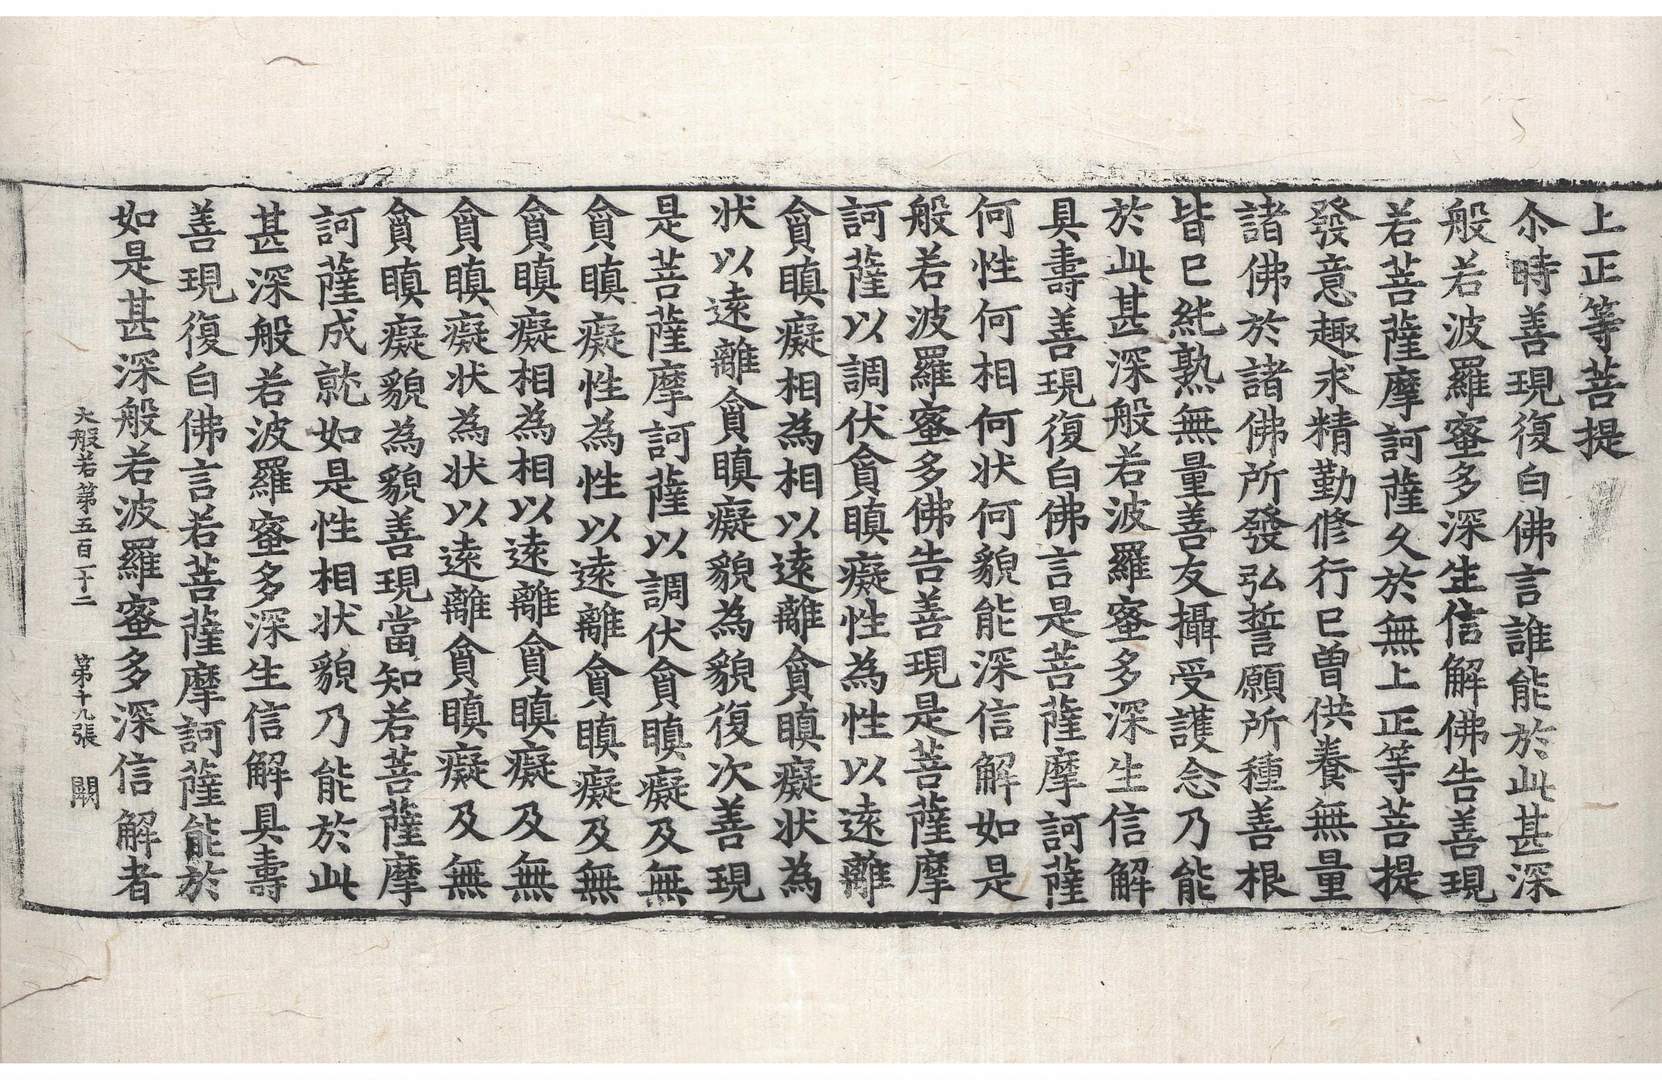 上正等菩提
尒時善現復白佛言誰能於此甚深
般若波羅蜜多深生信解佛告善現
若菩薩摩訶薩久於無上正等菩提
發意趣求精勤修行已曾供養無量
諸佛於諸佛所發弘誓願所種善根
皆已純熟無量善友攝受護念乃能
於此甚深般若波羅蜜多深生信解
具壽善現復白佛言是菩薩摩訶薩
何性何相何狀何貌能深信解如是
般若波羅蜜多佛告善現是菩薩摩
訶薩以調伏貪瞋癡性為性以遠離
貪瞋癡相為相以遠離貪瞋癡狀為
狀以遠離貪瞋癡貌為貌復次善現
是菩薩摩訶薩以調伏貪瞋癡及無
貪瞋癡性為性以遠離貪瞋癡及無
貪瞋癡相為相以遠離貪瞋癡及無
貪瞋癡狀為狀以遠離貪瞋癡及無
貪瞋癡貌為貌善現當知若菩薩摩
訶薩成就如是性相狀貌乃能於此
甚深般若波羅蜜多深生信解具壽
善現復白佛言若菩薩摩訶薩能於
如是甚深般若波羅蜜多深信解者
大般若第五百二十二 第十九張